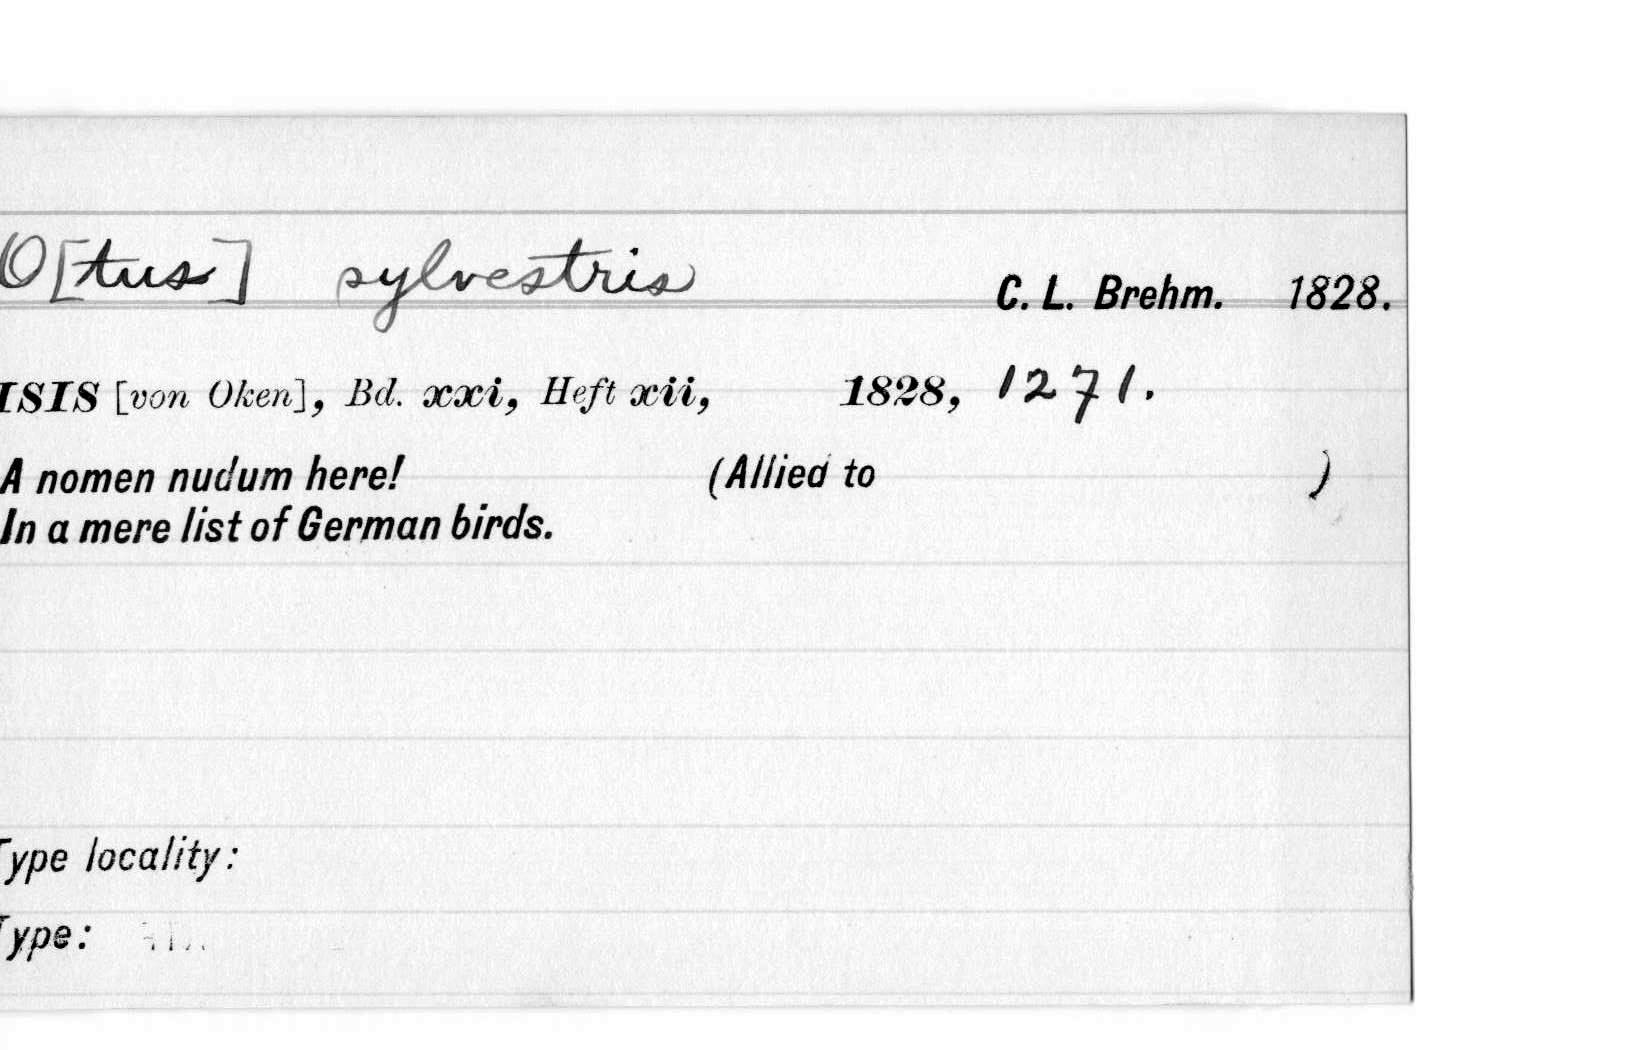 O[tus] sylvestris C. L. Brehm. 1828.
ISIS [von Oken], Bd. xxi, Heft xii, 1828, 1271.
A nomen nudum here! (Allied to )
In a mere list of German birds.
Type locality:
Type: